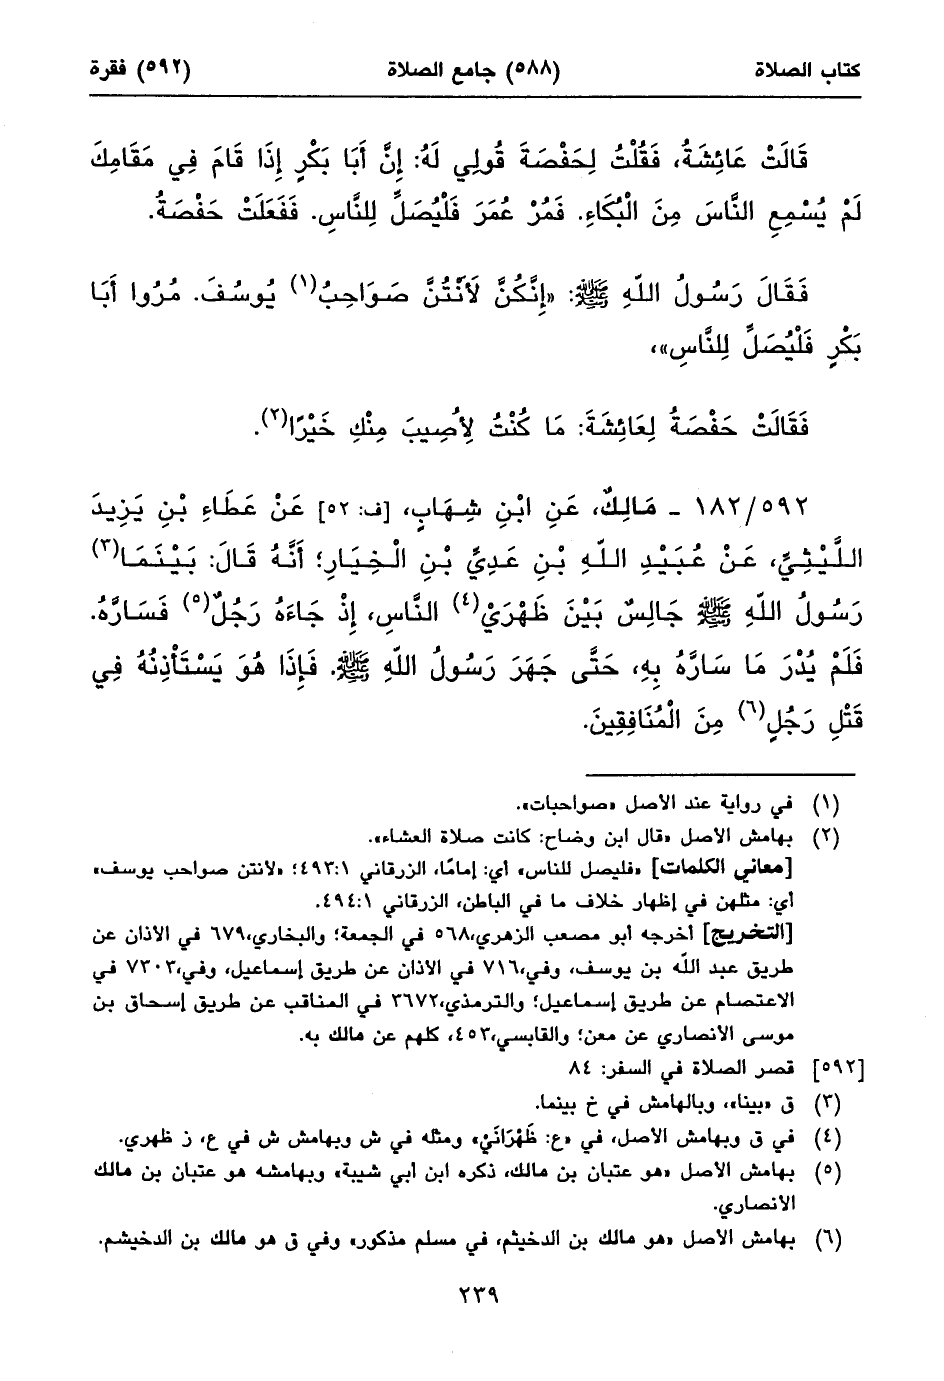 كتاب الصلاة (٥٨٨) جامع الصلاة (٥٩٢) فقرة
قَالَتْ عَائِشَةُ، فَقُلْتُ لِحَفْصَةَ قُولِي لَهُ: إِنَّ أَبَا بَكْرٍ إِذَا قَامَ فِي مَقَامِكَ
لَمْ يُسْمِعِ النَّاسَ مِنَ الْبُكَاءِ. فَمُرْ عُمَرَ فَلْيُصَلِّ لِلنَّاسِ. فَفَعَلَتْ حَفْصَةُ.
فَقَالَ رَسُولُ اللّهِ ﷺ: «إِنَّكُنَّ لَأَنْتُنَّ صَوَاحِبُ(١) يُوسُفَ. مُرُوا أَبَا
بَكْرٍ فَلْيُصَلِّ لِلنَّاسِ»،
فَقَالَتْ حَفْصَةُ لِعَائِشَةَ: مَا كُنْتُ لِأُصِيبَ مِنْكِ خَيْرًا(٢).
١٨٢/٥٩٢ - مَالِكٌ، عَنِ ابْنِ شِهَابٍ، [ف: ٥٢] عَنْ عَطَاءِ بْنِ يَزِيدَ
اللَّيْثِيِّ، عَنْ عُبَيْدِ اللّهِ بْنِ عَدِيِّ بْنِ الْخِيَارِ؛ أَنَّهُ قَالَ: بَيْنَمَا(٣)
رَسُولُ اللّهِ ﷺ جَالِسٌ بَيْنَ ظَهْرَيْ(٤) النَّاسِ، إِذْ جَاءَهُ رَجُلٌ(٥) فَسَارَّهُ.
فَلَمْ يُدْرَ مَا سَارَّهُ بِهِ، حَتَّى جَهَرَ رَسُولُ اللّهِ ﷺ. فَإِذَا هُوَ يَسْتَأْذِنُهُ فِي
قَتْلِ رَجُلٍ(٦) مِنَ الْمُنَافِقِينَ.
(١) في رواية عند الأصل «صواحبات».
(٢) بهامش الأصل «قال ابن وضاح: كانت صلاة العشاء».
[معاني الكلمات] «فليصل للناس» أي: إمامًا، الزرقاني ٤٩٣:١؛ «لأنتن صواحب يوسف»
أي: مثلهن في إظهار خلاف ما في الباطن، الزرقاني ٤٩٤:١.
[التخريج] أخرجه أبو مصعب الزهري، ٥٦٨ في الجمعة؛ والبخاري، ٦٧٩ في الأذان عن
طريق عبد اللّه بن يوسف، وفي، ٧١٦ في الأذان عن طريق إسماعيل، وفي، ٧٣٠٣ في
الاعتصام عن طريق إسماعيل؛ والترمذي، ٣٦٧٢ في المناقب عن طريق إسحاق بن
موسى الأنصاري عن معن؛ والقابسي، ٤٥٣، كلهم عن مالك به.
[٥٩٢] قصر الصلاة في السفر: ٨٤
(٣) ق «بينا»، وبالهامش في خ بينما.
(٤) في ق وبهامش الأصل، في «ع: ظَهْرَانَيْ» ومثله في ش وبهامش ش في ع، ز ظهري.
(٥) بهامش الأصل «هو عتبان بن مالك، ذكره ابن أبي شيبة» وبهامشه هو عتبان بن مالك
الأنصاري.
(٦) بهامش الأصل «هو مالك بن الدخيثم، في مسلم مذكور» وفي ق هو مالك بن الدخيشم.
٢٣٩